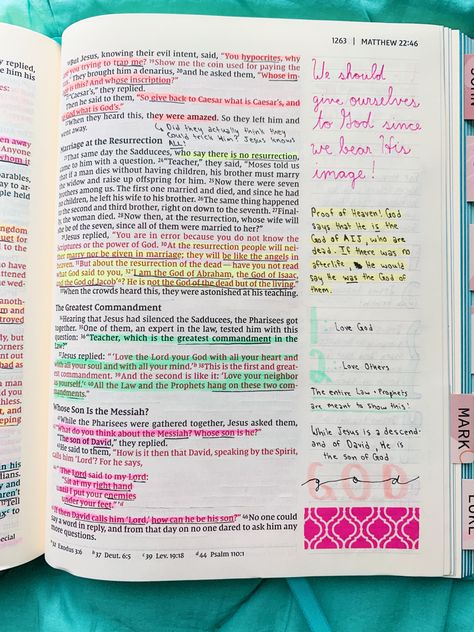 1263 | MATTHEW 22:46
18But Jesus, knowing their evil intent, said, "You hypocrites, why
are you trying to trap me? 19Show me the coin used for paying the
tax." They brought him a denarius, 20and he asked them, "Whose im-
age is this? And whose inscription?"
21"Caesar's," they replied.
Then he said to them, "So give back to Caesar what is Caesar's, and
to God what is God's."
22When they heard this, they were amazed. So they left him and
went away.
↳ Did they actually think they
could trick Him? Jesus knows
ALL!
Marriage at the Resurrection
23That same day the Sadducees, who say there is no resurrection,
came to him with a question. 24"Teacher," they said, "Moses told us
that if a man dies without having children, his brother must marry
the widow and raise up offspring for him. 25Now there were seven
brothers among us. The first one married and died, and since he had
no children, he left his wife to his brother. 26The same thing happened
to the second and third brother, right on down to the seventh. 27Final-
ly, the woman died. 28Now then, at the resurrection, whose wife will
she be of the seven, since all of them were married to her?"
29Jesus replied, "You are in error because you do not know the
Scriptures or the power of God. 30At the resurrection people will nei-
ther marry nor be given in marriage; they will be like the angels in
heaven. 31But about the resurrection of the dead—have you not read
what God said to you, 32'I am the God of Abraham, the God of Isaac,
and the God of Jacob'b? He is not the God of the dead but of the living."
33When the crowds heard this, they were astonished at his teaching.
The Greatest Commandment
34Hearing that Jesus had silenced the Sadducees, the Pharisees got
together. 35One of them, an expert in the law, tested him with this
question: 36"Teacher, which is the greatest commandment in the
Law?"
37Jesus replied: "'Love the Lord your God with all your heart and
with all your soul and with all your mind.' 38This is the first and great-
est commandment. 39And the second is like it: 'Love your neighbor
as yourself.' 40All the Law and the Prophets hang on these two com-
mandments."
Whose Son Is the Messiah?
41While the Pharisees were gathered together, Jesus asked them,
42"What do you think about the Messiah? Whose son is he?"
"The son of David," they replied.
43He said to them, "How is it then that David, speaking by the Spirit,
calls him 'Lord'? For he says,
44"'The Lord said to my Lord:
"Sit at my right hand
until I put your enemies
under your feet."'d
45If then David calls him 'Lord,' how can he be his son?" 46No one could
say a word in reply, and from that day on no one dared to ask him any
more questions.
a32 Exodus 3:6 b37 Deut. 6:5 c39 Lev. 19:18 d44 Psalm 110:1
We should
give ourselves
to God since
we bear His
image!
Proof of Heaven! God
says that He is the
God of AIJ, who are
dead. If there was
no afterlife, He would
say He was the God of
them.
1 : Love God
2 : Love Others
The entire Law + Prophets
are meant to show this!
While Jesus is a descend-
and of David, He is
the son of God
GOD
god
MARK
LUKE